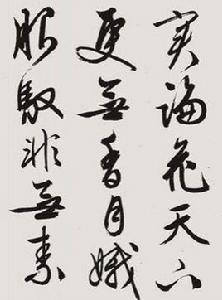 論花天
更無香月娥
服馭非無素